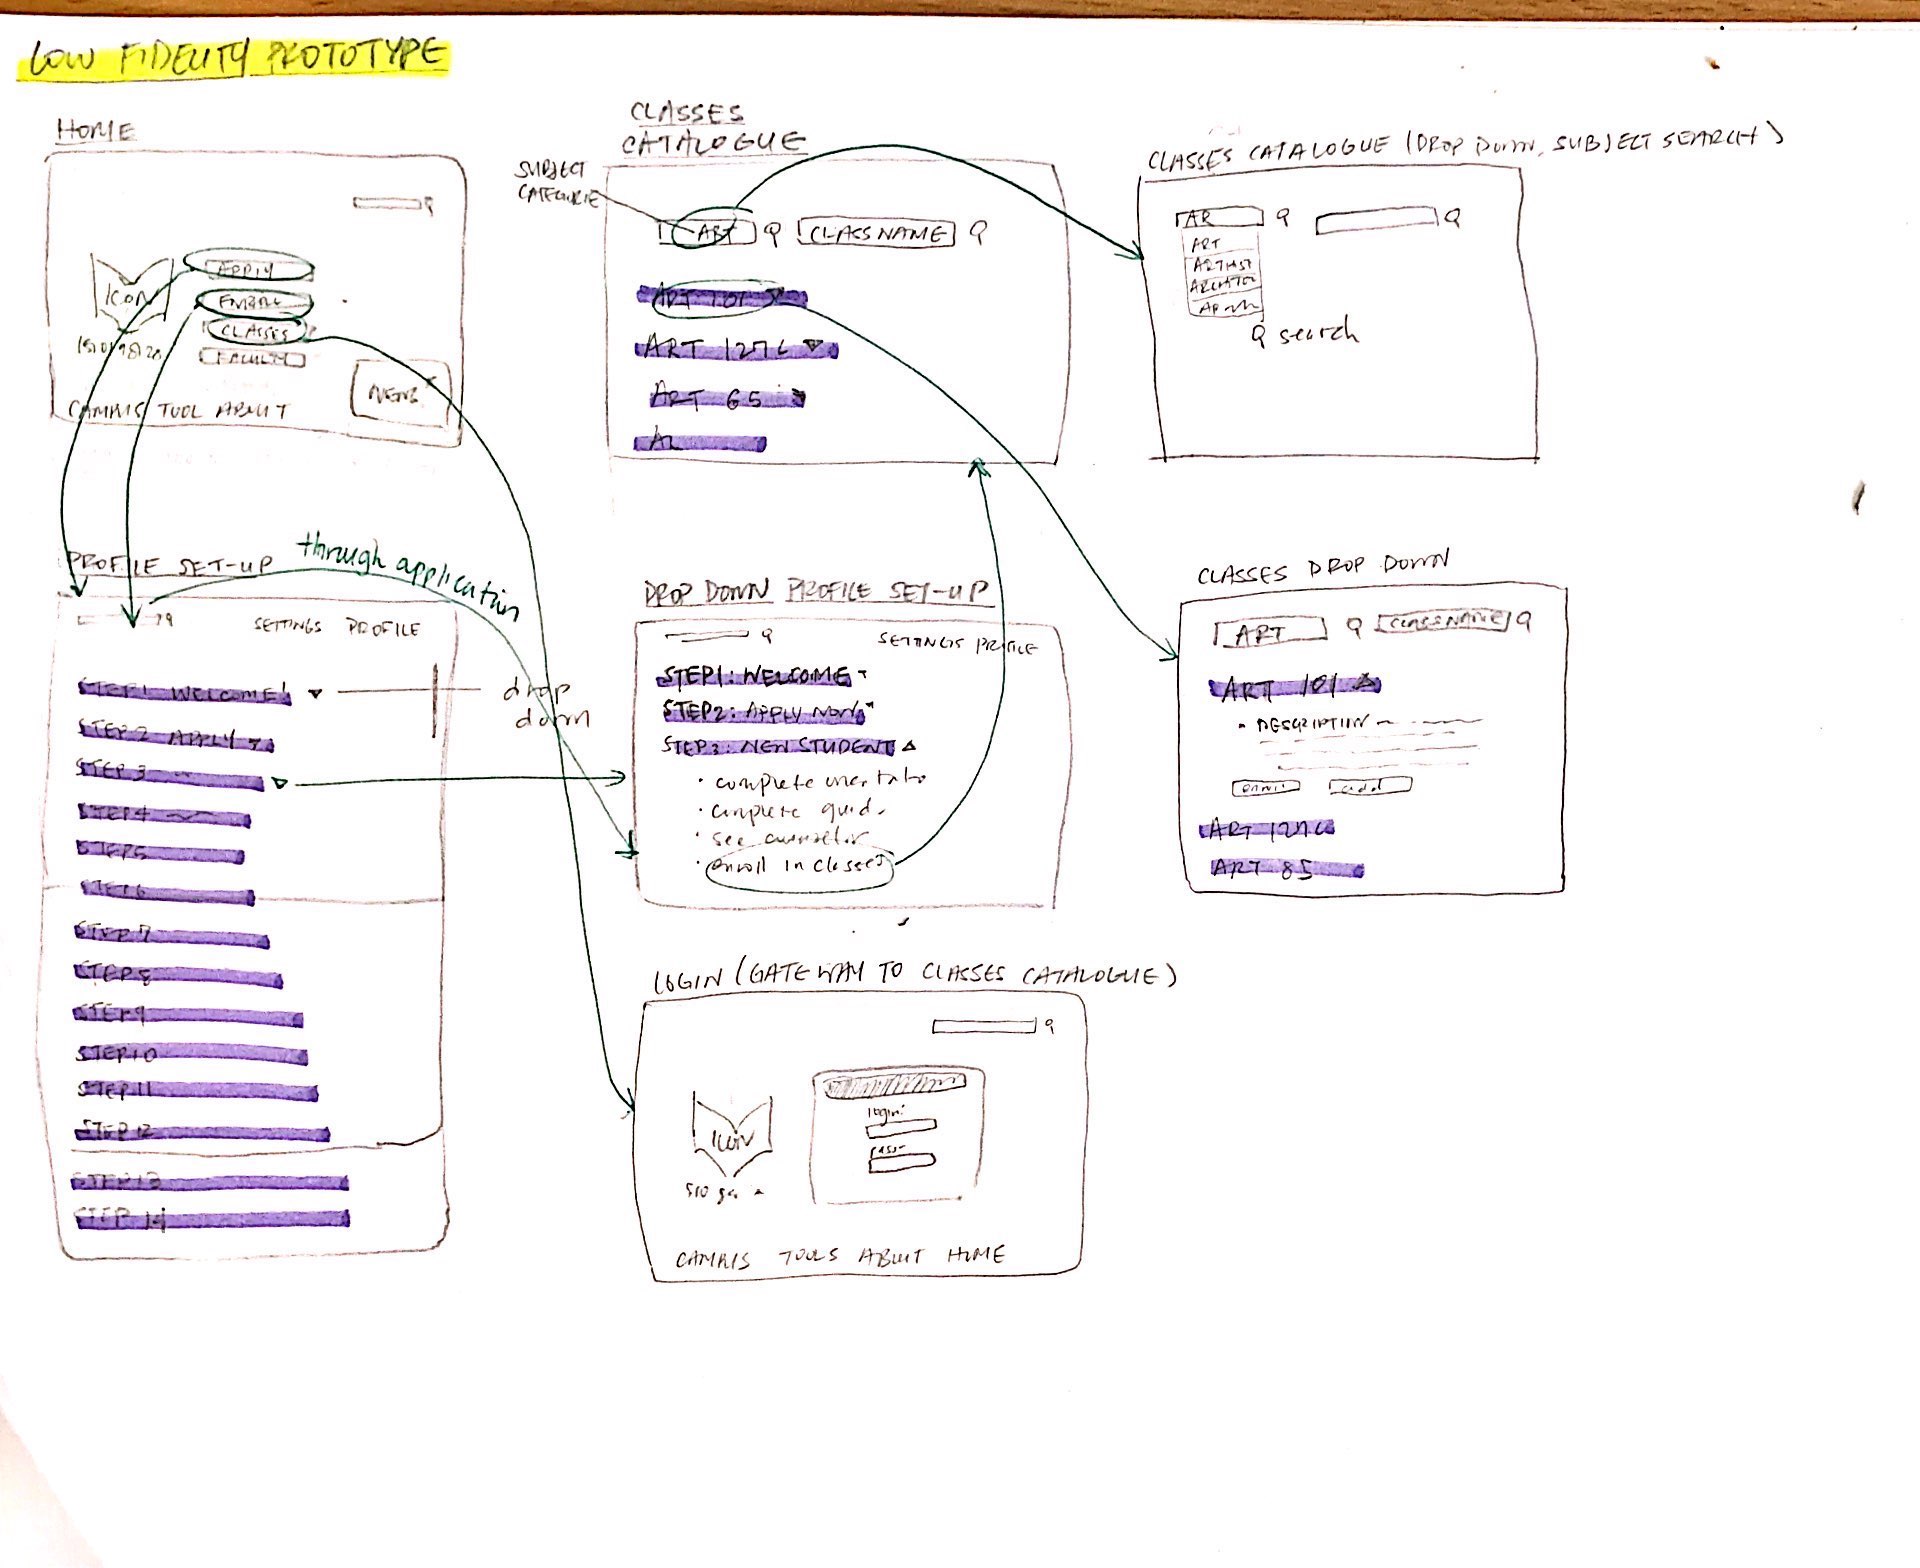 LOW FIDELITY PROTOTYPE
HOME
APPLY
ENROLL
CLASSES
FACULTY
ICON
NEWS
CAMPUS TOOL ABOUT
CLASSES
CATALOGUE
SUBJECT
CATEGORIE
ART
CLASS NAME
ART 101
ART 127C
ART 65
AL
CLASSES CATALOGUE (DROP DOWN, SUBJECT SEARCH)
AR
ART
ARTHIST
search
PROFILE SET-UP
through application
SETTINGS PROFILE
STEP 1 WELCOME!
drop
down
STEP 2 APPLY
STEP 3
STEP 4
STEP 5
STEP 6
STEP 7
STEP 8
STEP 9
STEP 10
STEP 11
STEP 12
STEP 13
STEP 14
DROP DOWN PROFILE SET-UP
SETTINGS PROFILE
STEP1: WELCOME
STEP2: APPLY NOW
STEP3: NEW STUDENT
• complete
• complete guid.
• see counselor
• enroll in classes
CLASSES DROP DOWN
ART
CLASS NAME
ART 101
• DESCRIPTION
enroll
add
ART 127C
ART 85
LOGIN (GATEWAY TO CLASSES CATALOGUE)
login:
ICON
CAMPUS TOOLS ABOUT HOME